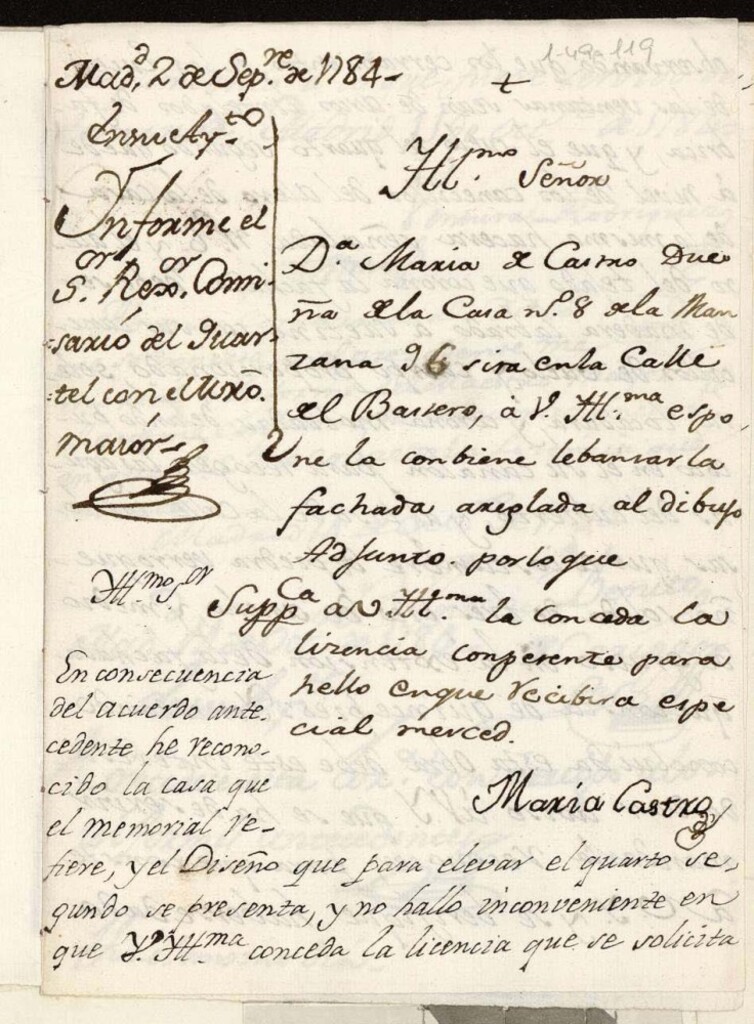 1-49-119
Mad.d 2 de Sep.re de 1784-
+
En su Ay.to
Informe el
S.or Rex.or Comi-
sario del Quar-
tel con el Mro.
maior-
Ill.mo Señor
D.a Maria de Castro Due
ña de la Casa n.o 8 de la Man
zana 96 sita en la Calle
del Bastero, à V. Ill.ma espo
ne la conbiene lebantar la
fachada areglada al dibujo
Adjunto. por lo que
Supp.ca a V Ill.ma la Conceda la
lizencia conpetente para
hello en que recibira espe
cial merced.
Maria Castro
Ill.mo S.or
En consecuencia
del acuerdo ante-
cedente he recono-
cido la casa que
el memorial re-
fiere, y el Diseño que para elevar el quarto se-
gundo se presenta, y no hallo inconveniente en
que V. Ill.ma conceda la licencia que se solicita